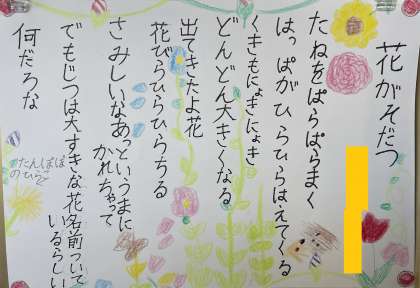 花がそだつ
たねをぱらぱらまく
はっぱがひらひらはえてくる
くきもにょきにょき
どんどん大きくなる
出てきたよ花
花びらひらひらちる
さみしいなあっというまに
かれちゃって
でもじつは大すきな花名前ついて
いるらしい
何だろな
たんぽぽ
のひらご